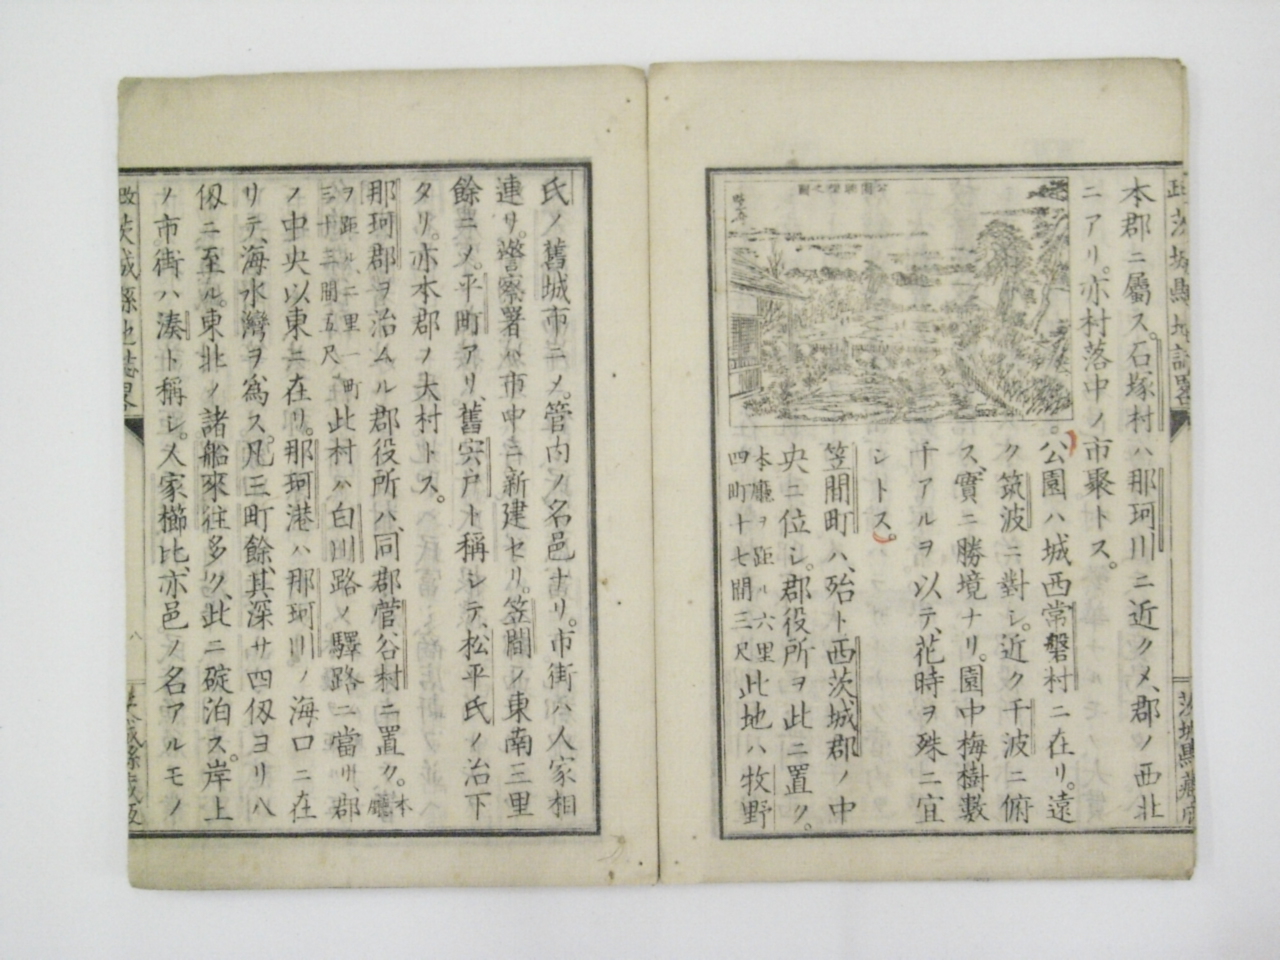 本郡ニ屬ス。石塚村ハ那珂川ニ近クメ、郡ノ西北
ニアリ。亦村落中ノ市聚トス。
公園ハ城西常磐村ニ在リ。遠
ク筑波ニ對シ。近ク千波ニ俯
ス。實ニ勝境ナリ。園中梅樹數
千アルヲ以テ、花時ヲ殊ニ宜
シトス。
笠間町ハ、殆ト西茨城郡ノ中
央ニ位シ。郡役所ヲ此ニ置ク。
本廳ヲ距ル六里
四町十七間三尺
此地ハ牧野
茨城縣藏版
氏ノ舊城市ニメ。管内ノ名邑ナリ。市街ハ人家相
連リ。警察署ハ市中ニ新建セリ。笠間ノ東南三里
餘ニメ。平町アリ、舊宍戸ト稱シテ、松平氏ノ治下
タリ。亦本郡ノ大村トス。
那珂郡ヲ治ムル郡役所ハ、同郡菅谷村ニ置ク。本廳
ヲ距ル、二里一町
三十三間五尺
此村ハ白川路ノ驛路ニ當リ、郡
ノ中央以東ニ在リ。那珂港ハ那珂川ノ海口ニ在
リテ、海水灣ヲ爲ス。凡三町餘、其深サ四仭ヨリ八
仭ニ至ル。東北ノ諸船來往多ク、此ニ碇泊ス。岸上
ノ市街ハ湊ト稱シ。人家櫛比、亦邑ノ名アルモノ
茨城縣地誌略
八